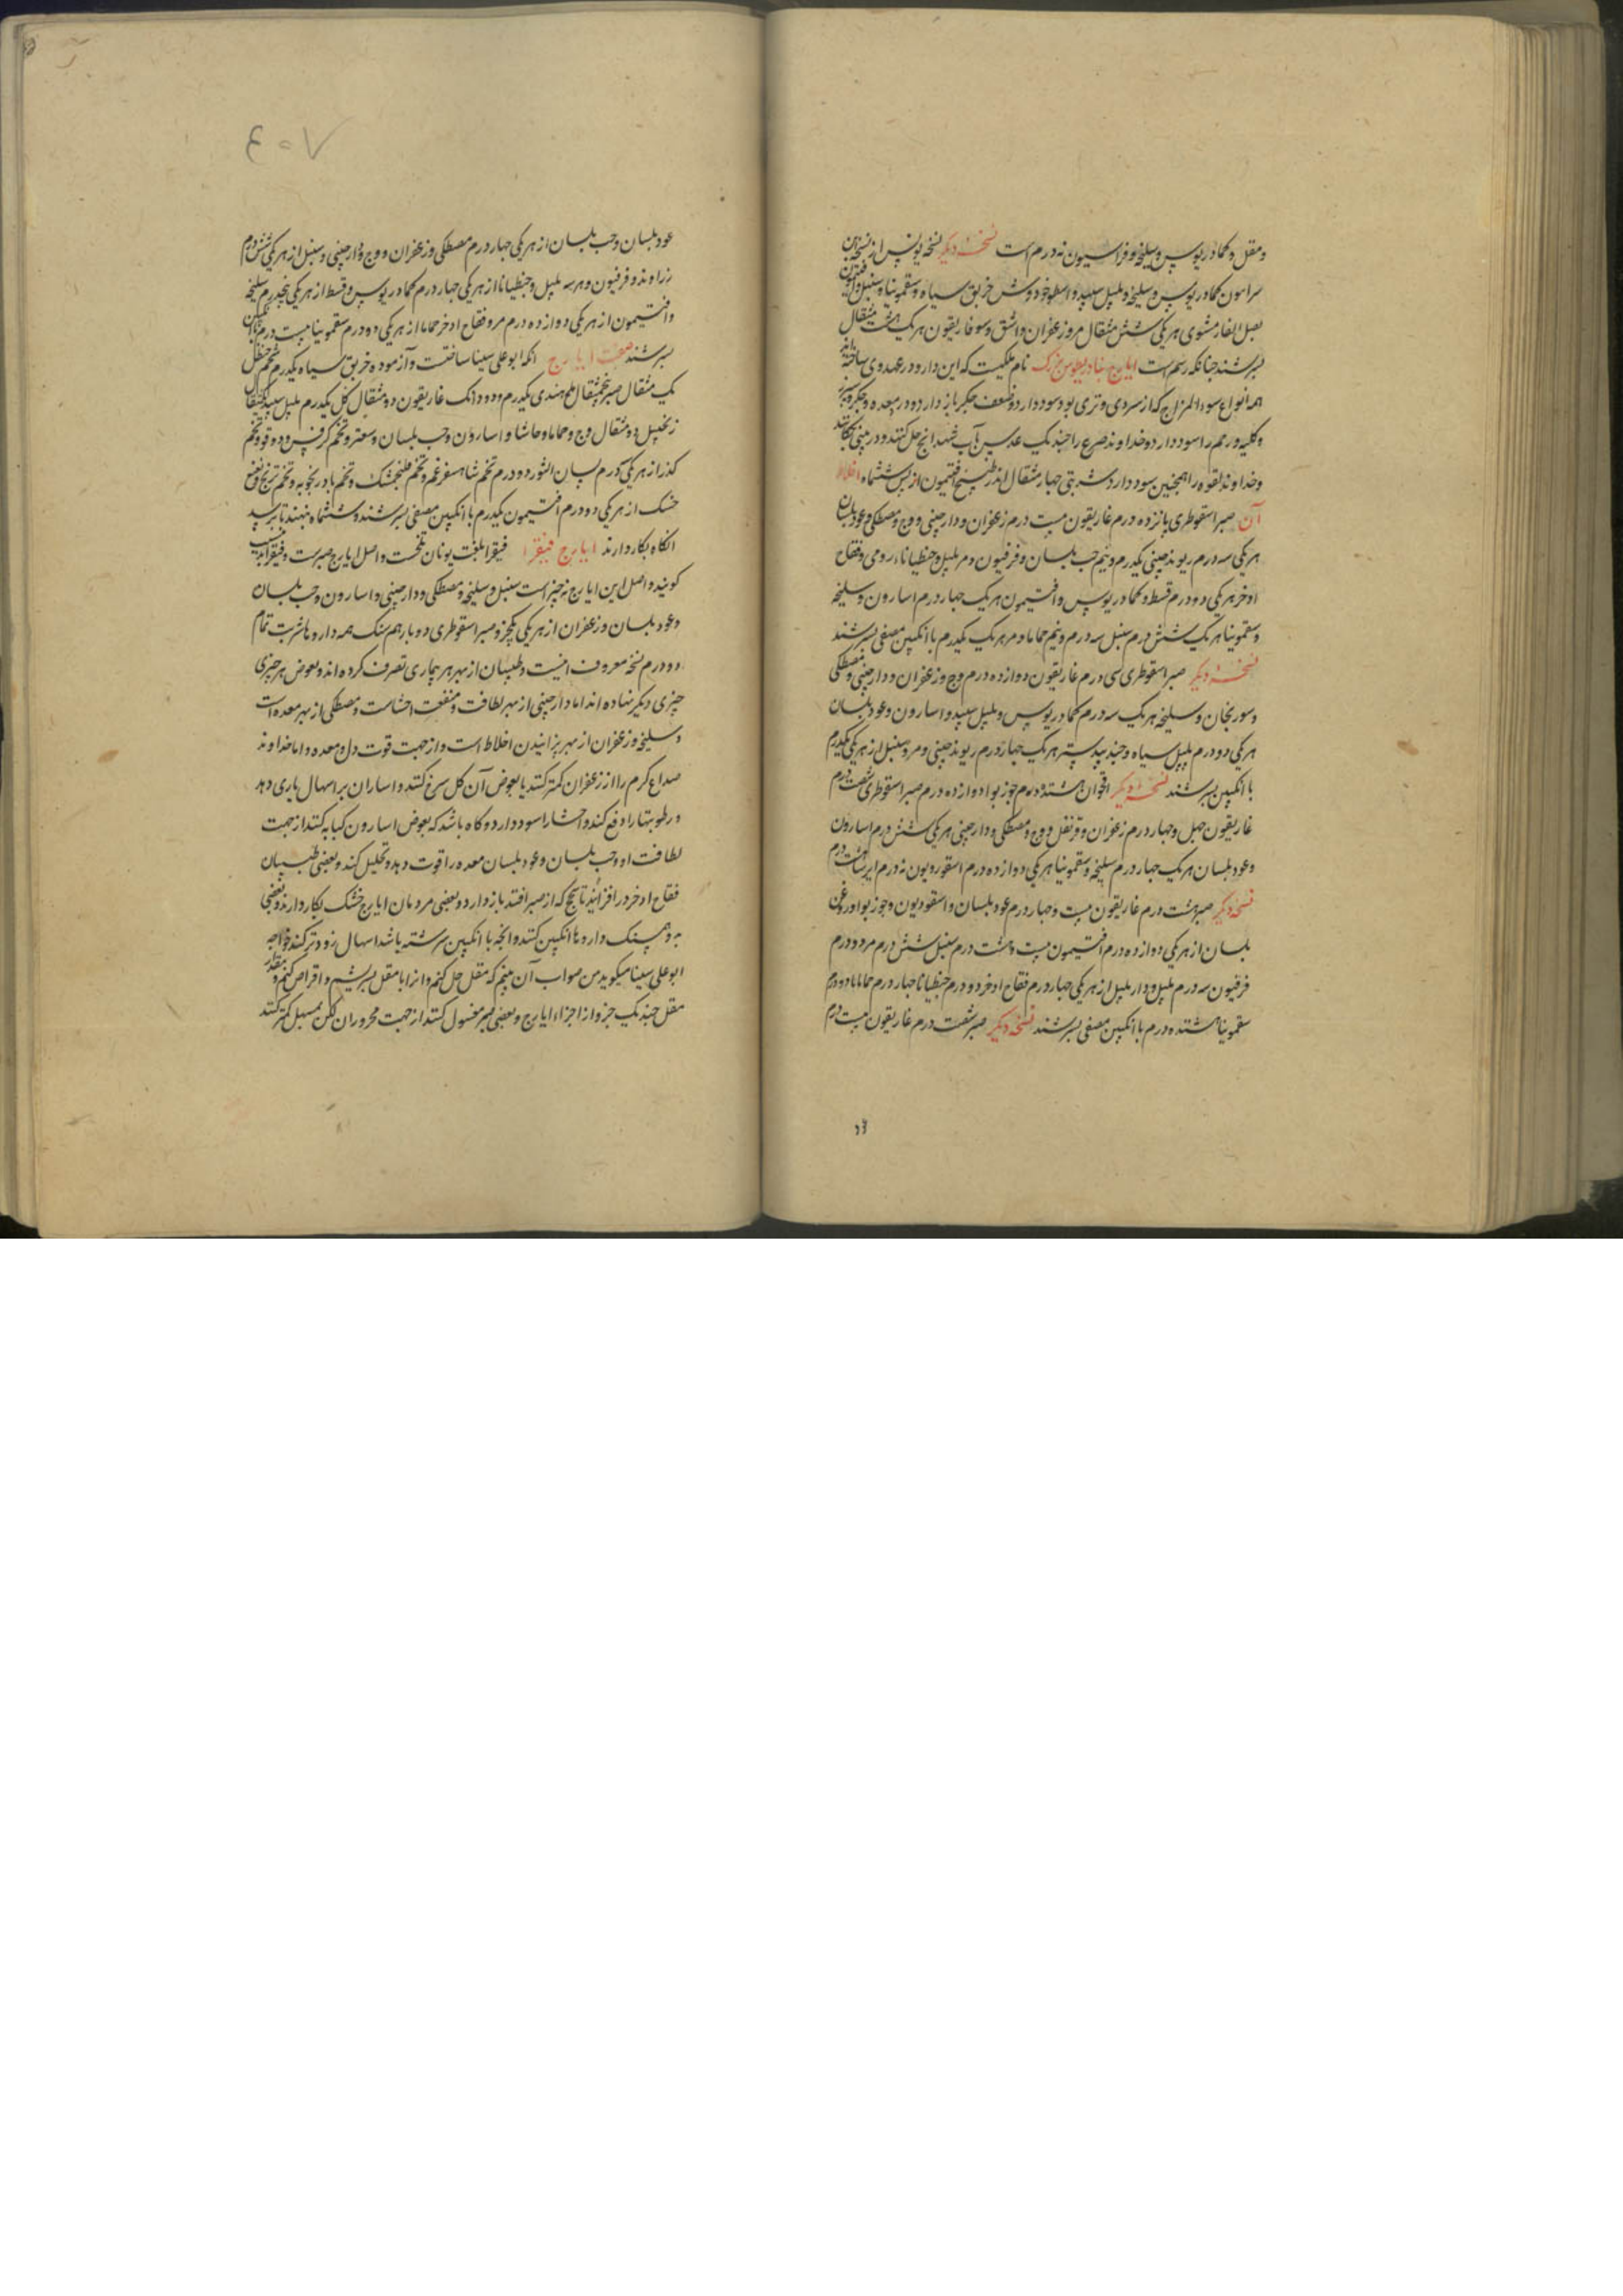 و مقل و کمادریوس و سلیخه و فراسیون نه درم است نسخه دیگر نسخه یونس از نسخه
سرامون کمادریوس و سلیخه و پلپل سپید و اسطوخودوس خربق سیاه و سقمونیا و سنبل و افتیمون
بصل الفار مشوی هر یکی شش مثقال مر و زعفران و اشق و سو غاریقون هر یک هشت مثقال
بسرشند چنانکه رسم است ایارج بنادریطوس بزرک نام ملکیست که این دارو در عهد وی ساخته اند
همه انواع سوء المزاج که از سردی و تری بود سود دارد و ضعف جکر باز دارد و در معده و جکر و سپرز
و کلیه و رحم را سود دارد و خداوند صرع را چند یک عدس بآب شهدانج حل کنند و در بینی چکانند
و خداوند لقوه را همچنین سود دارد شربتی چهار مثقال اندر طبیخ افتیمون از پس ششماه اخلاط
آن صبر اسقوطری پانزده درم غاریقون بیست درم زعفران و دارچینی و وج و مصطکی و عود بلسان
هر یکی سه درم ریوند چینی یکدرم و نیم حب بلسان و فرفیون و مر پلپل و جنطیانا رومی و فقاح
اذخر هر یکی دو درم قسط و کمادریوس و افتیمون هر یک چهار درم اسارون و سلیخه
و سقمونیا هر یک شش درم سنبل سه درم و نیم حماما و مر هر یک یکدرم با انکبین مصفی بسرشند
نسخه دیکر صبر اسقوطری سی درم غاریقون دوازده درم وج و زعفران و دارچینی و مصطکی
و سورنجان و سلیخه هر یک سه درم کمادریوس و پلپل سپید و اسارون و عود بلسان
هر یکی دو درم پلپل سیاه و جندبیدستر هر یک چهار درم ریوند چینی و مر و سنبل از هر یکی یکدرم
با انکبین بسرشند نسخه دیکر اقحوان هشتده درم جوز بوا دوازده درم صبر اسقوطری شصت درم
غاریقون چهل و چهار درم زعفران و قرنفل و وج و مصطکی و دارچینی هر یکی شش درم اسارون
و عود بلسان هر یک چهار درم سلیخه و سقمونیا هر یکی دوازده درم اسقوردیون نه درم ایرسا درم
نسخه دیکر صبر هشت درم غاریقون بیست و چهار درم عود بلسان و اسقودیون و جوز بوا و روغن
بلسان از هر یکی دوازده درم افتیمون بیست و هشت درم سنبل شش درم مر دو درم
فرفیون سه درم پلپل و دار پلپل از هر یکی چهار درم فقاح اذخر دو درم جنطیانا چهار درم حماما دو درم
سقمونیا هشتده درم با انکبین مصفی بسرشند نسخه دیکر صبر شصت درم غاریقون بیست درم
٤٠٧
عود بلسان و حب بلسان از هر یکی چهار درم مصطکی و زعفران و وج و دارچینی و سنبل از هر یکی شش درم
زراوند و فرفیون و هر سه پلپل و جنطیانا از هر یکی چهار درم کمادریوس و قسط از هر یکی پنجدرم سلیخه
و افتیمون از هر یکی دوازده درم مر و فقاح اذخر حماما از هر یکی دو درم سقمونیا بیست درم بانکبین
بسرشند صفت ایارج انکه ابو علی سینا ساختست و آزموده خربق سیاه یکدرم شحم حنظل
یک مثقال صبر پنج مثقال ملح هندی یکدرم و دو دانک غاریقون دو مثقال کل یکدرم پلپل سپید یکمثقال
زنجبیل دو مثقال وج و حماما و حاشا و اسارون و حب بلسان و سعتر و تخم کرفس و دوقو و تخم
کذر از هر یکی درم لسان الثور دو درم تخم شاهسفرغم و تخم فلنجمشک و تخم بادرنجبویه و تخم ترنج و نعنع
خشک از هر یکی دو درم افتیمون یکدرم با انکبین مصفی بسرشند و ششماه بنهند تا برسد
انکاه بکار دارند ایارج فیقرا فیقرا بلغت یونان تلخست و اصل ایارج صبرست و فیقرا بدین سبب
کویند و اصل این ایارج نه چیز است سنبل و سلیخه و مصطکی و دارچینی و اسارون و حب بلسان
و عود بلسان و زعفران از هر یکی یکجزو صبر اسقوطری دو بار هم سنک همه داروها شربت تمام
دو درم نسخه معروف اینست و طبیبان از بهر هر بیماری تصرف کرده اند و بعوض هر چیزی
چیزی دیکر نهاده اند اما دارچینی از بهر لطافت و منفعت احشاست و مصطکی از بهر معده است
و سلیخه و زعفران از بهر پزانیدن اخلاط است و از جهت قوت دل و معده و اما خداوند
صداع کرم را از زعفران کمتر کنند یا بعوض آن کل سرخ کنند و اسارون بر اسهال یاری دهد
و رطوبتها را دفع کند و احشا را سود دارد و کاه باشد که بعوض اسارون کبابه کنند از جهت
لطافت او و حب بلسان و عود بلسان معده را قوت دهد و تحلیل کند و بعضی طبیبان
فقاح اذخر در افزایند تا سحج که از صبر افتد باز دارد و بعضی مردمان ایارج خشک بکار دارند و بعضی
به و هم سنک داروها انکبین کنند و انچه با انکبین سرشته باشد اسهال زودتر کند خواجه
ابو علی سینا میکوید من صواب آن بینم که مقل حل کنم و انرا با مقل بسریشم و اقراص کنم و مقدار
مقل چند یک جزو از اجزاء ایارج و بعضی صبر مغسول کنند از جهت محروران لکن مسهل کمتر کنند